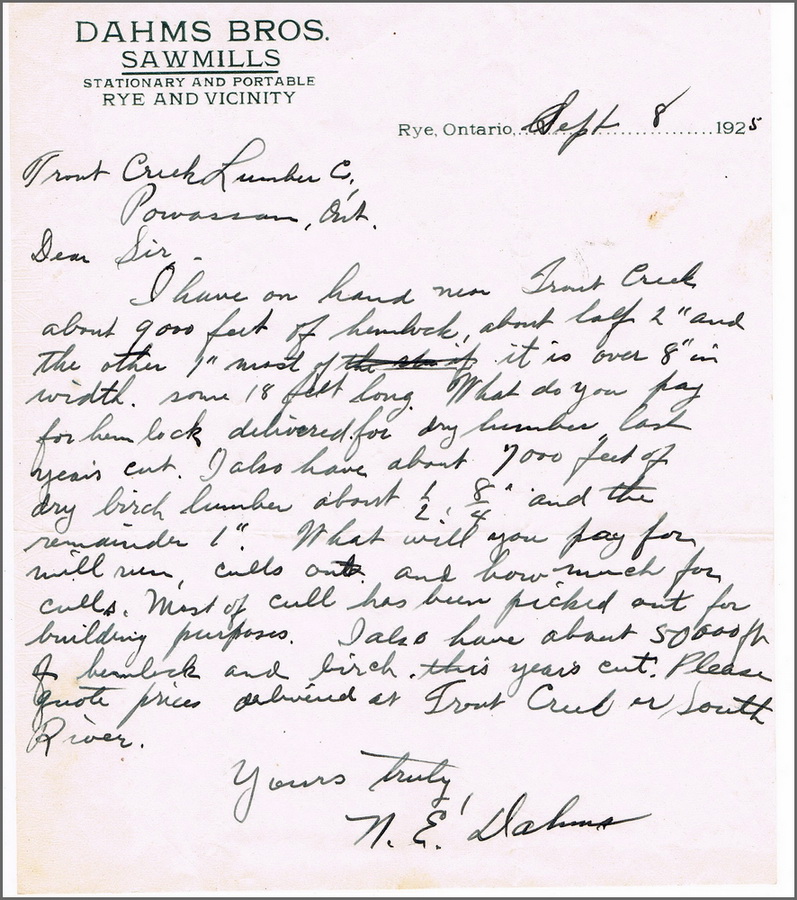 DAHMS BROS.
SAWMILLS
STATIONARY AND PORTABLE
RYE AND VICINITY
Rye, Ontario, Sept 8 1925
Trout Creek Lumber C,
Powassan, Ont.
Dear Sir,
I have on hand near Trout Creek
about 9000 feet of hemlock, about half 2" and
the other 1" most of it is over 8" in
width. some 18 feet long. What do you pay
for hemlock delivered for dry lumber last
years cut. I also have about 7000 feet of
dry birch lumber about 1/2, 8/4" and the
remainder 1". What will you pay for
mill run, culls out. and how much for
culls. Most of cull has been picked out for
building purposes. I also have about 50000 ft
of hemlock and birch. this years cut. Please
quote prices delivered at Trout Creek or South
River.
Yours truly,
N. E. Dahms